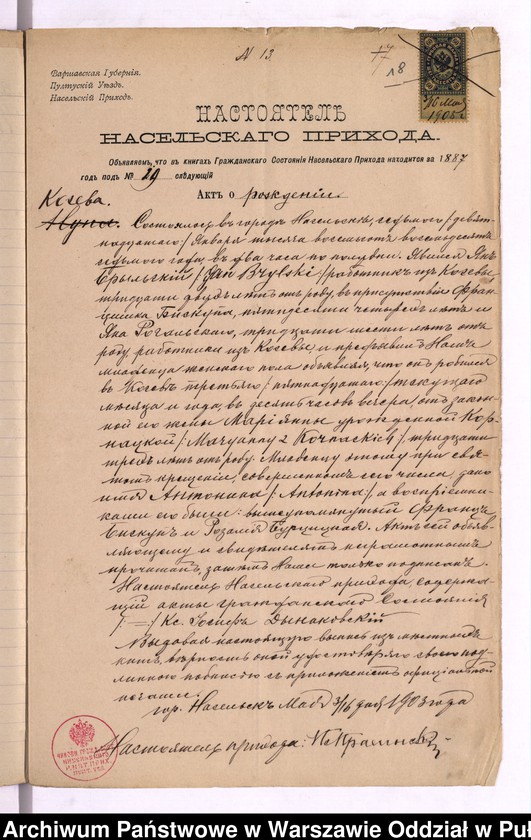 N 13.
18
Варшавская Губернія.
Пултускій Уѣздъ.
Насельскій Приходъ.
16 Мая
1905 г.
НАСТОЯТЕЛЬ
НАСЕЛЬСКАГО ПРИХОДА.
Объявляемъ, что въ книгахъ Гражданскаго Состоянія Насельскаго Прихода находится за 1887
годъ подъ № 29 слѣдующій
Актъ о рожденіи.
Косева.
Состоялось въ городѣ Насельскѣ, седьмого / девят-
надцатаго / Января тысяча восемьсотъ восемьдесятъ
седьмого года, въ два часа по полудни. Явился Янъ
Брыльскій / Jan Brylski / работникъ изъ Косева,
тридцати двухъ лѣтъ отъ роду, въ присутствіи Фран-
цишка Бискупа, пятидесяти четырехъ лѣтъ и
Яна Рогальскаго, тридцати шести лѣтъ отъ
роду работники изъ Косева, и предъявилъ Намъ
младенца женскаго пола объявляя, что онъ родился
въ Косевѣ третьяго / пятнадцатаго / текущаго
мѣсяца и года, въ десять часовъ вечера, отъ закон-
ной его жены Маріянны урожденной Кор-
нацкой / Maryanny z Kornackich / тридцати
трехъ лѣтъ отъ роду. Младенцу этому при свя-
томъ крещеніи, совершенномъ сего числа, дано
имя Антонина / Antonina / а воспріемни-
ками его были: вышеупомянутый Францъ
Бискупъ и Розалія. Актъ сей объяв-
ляющему и свидѣтелямъ неграмотнымъ
прочитанъ, затѣмъ Нами только подписанъ.
Настоятель Насельскаго прихода, содержа-
щій акты гражданскаго состоянія
/-=-/ Кс. Іосифъ
Выдавая настоящую выпись изъ мѣстныхъ
книгъ, вѣрность оной удостовѣряю своею под-
линною подписью съ приложеніемъ офиціальной
печати.
гор. Насельскъ Мая 3/16 дня 1905 года
Настоятель прихода:
Archiwum Państwowe w Warszawie Oddział w Pu